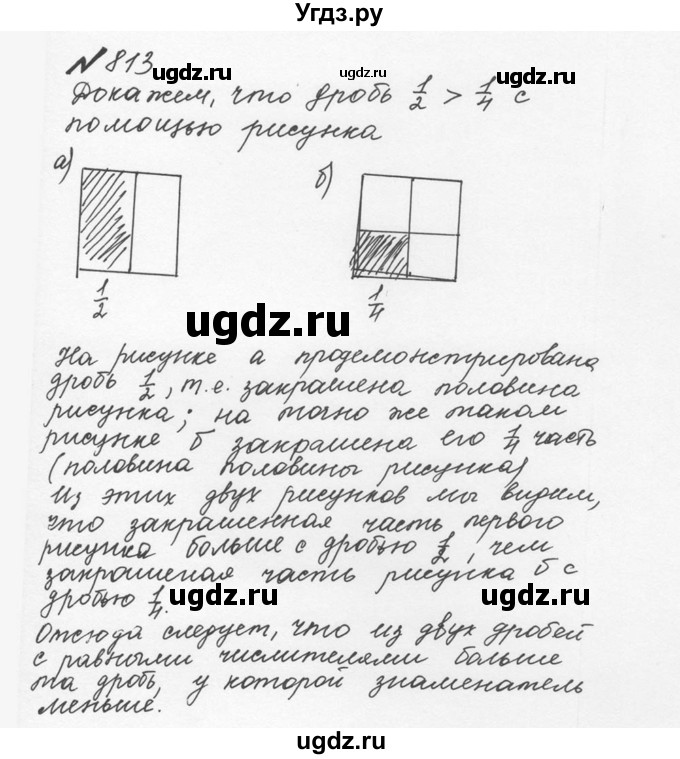 Угдз.ру
№ 813
ugdz.ru ugdz.ru
Докажем, что дробь 1/2 > 1/4 с
помощью рисунка
а) б)
1/2 1/4
ugdz.ru
ugdz.ru
На рисунке а продемонстрирована
дробь 1/2, т.е. закрашена половина
рисунка; на точно же таком
рисунке б закрашена его 1/4 часть
(половина половины рисунка)
Из этих двух рисунков мы видим,
что закрашенная часть первого
рисунка больше с дробью 1/2, чем
закрашеная часть рисунка б с
дробью 1/4.
ugdz.ru ugdz.ru
Отсюда следует, что из двух дробей
с равными числителями больше
та дробь, у которой знаменатель
меньше.
ugdz.ru